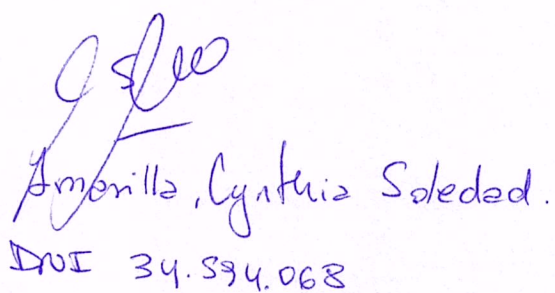 Amarilla, Cynthia Soledad.
DNI 34.594.068